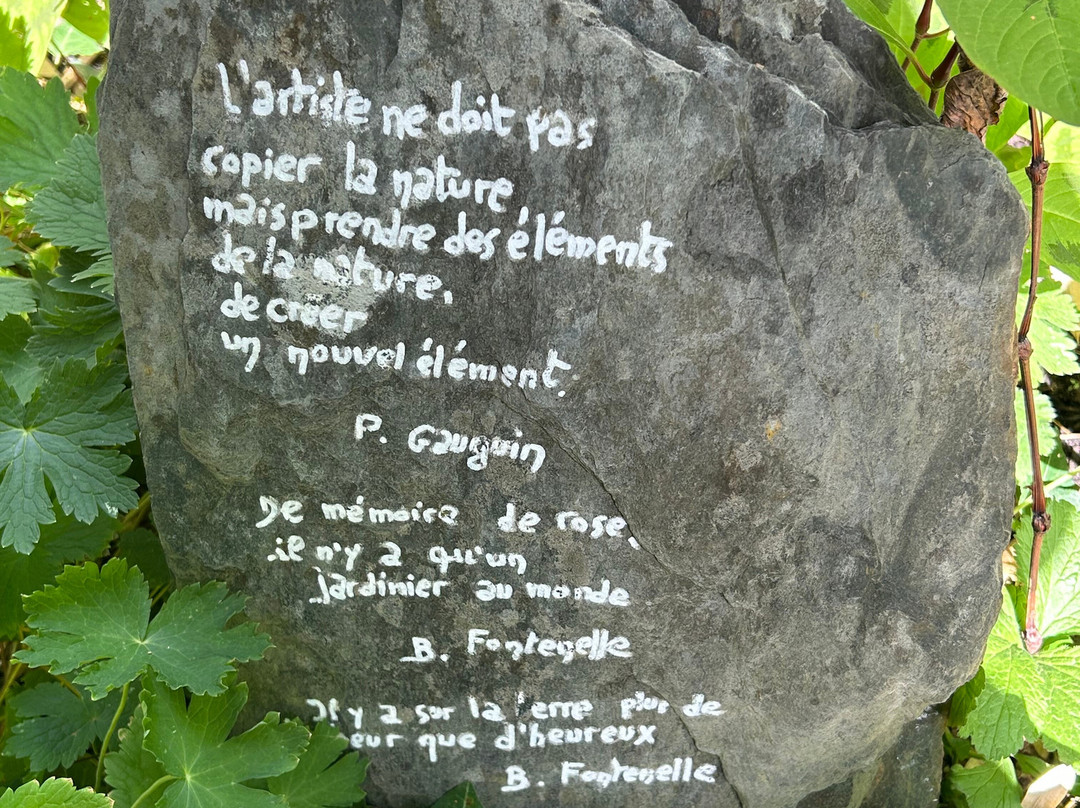 L'artiste ne doit pas
copier la nature
mais prendre des éléments
de la nature.
de creer
un nouvel élément.
P. Gauguin
De mémoire de rose,
il n'y a qu'un
jardinier au monde
B. Fontenelle
Il y a sur la terre plus de
eur que d'heureux
B. Fontenelle